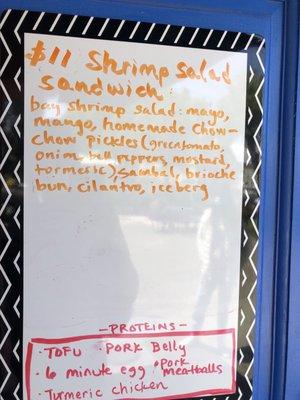 $11 Shrimp Salad
Sandwich:
bay shrimp salad: mayo,
mango, homemade chow-
chow pickles (green tomato,
onion, bell peppers, mustard,
turmeric), sambal, brioche
bun, cilantro, iceberg
- PROTEINS -
· TOFU · PORK Belly
· 6 minute egg · Pork
meatballs
· Turmeric chicken